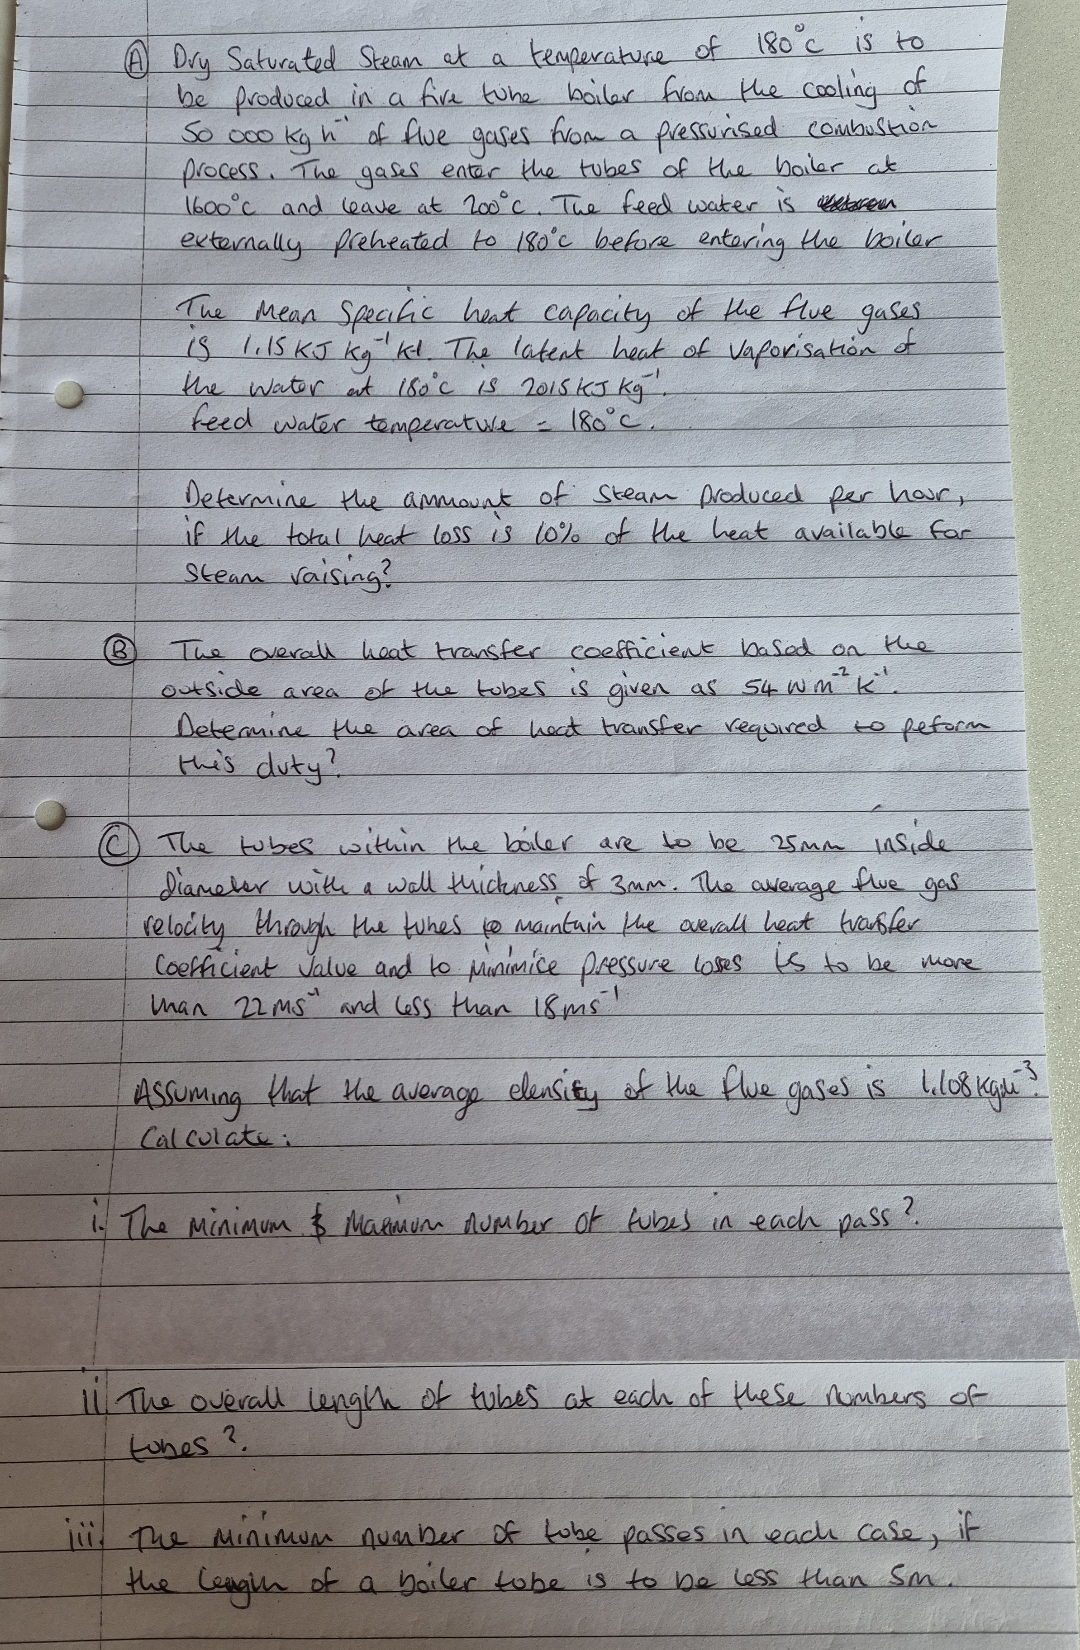 (A) Dry Saturated Steam at a temperature of 180°c is to
be produced in a fire tube boiler from the cooling of
50 000 kg h⁻¹ of flue gases from a pressurised combustion
process. The gases enter the tubes of the boiler at
1600°c and leave at 200°c. The feed water is
externally preheated to 180°c before entering the boiler
The Mean Specific heat capacity of the flue gases
is 1.15 KJ kg⁻¹ K⁻¹. The latent heat of vaporisation of
the water at 180°c is 2015 KJ Kg⁻¹.
feed water temperature = 180°C.
Determine the ammount of steam produced per hour,
if the total heat loss is 10% of the heat available for
steam raising?
(B) The overall heat transfer coefficient based on the
outside area of the tubes is given as 54 W m⁻² K⁻¹.
Determine the area of heat transfer required to peform
this duty?
(C) The tubes within the boiler are to be 25mm inside
Diameter with a wall thickness of 3mm. The average flue gas
velocity through the tubes to maintain the overall heat transfer
Coefficient value and to minimice pressure loses is to be more
than 22 ms⁻¹ and less than 18 ms⁻¹
Assuming that the average density of the flue gases is 1.108 kgm⁻³.
Calculate:
i. The minimum & Maximum number of tubes in each pass?
ii The overall length of tubes at each of these numbers of
tubes?.
iii. The minimum number of tube passes in each case, if
the length of a boiler tube is to be less than 5m.